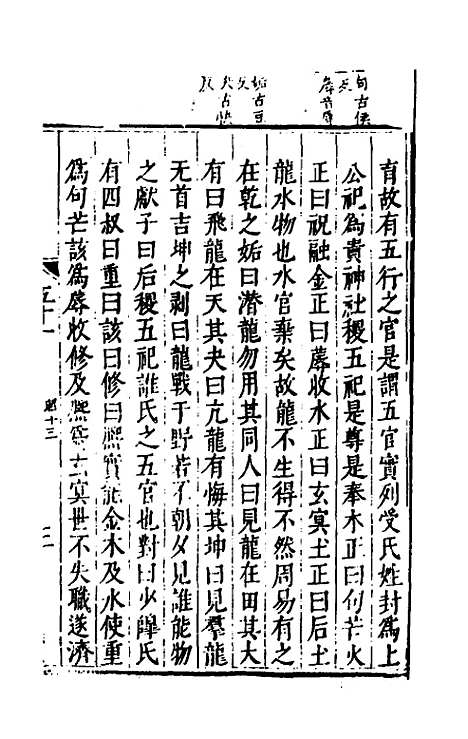 句古侯
反
蓐音辱
姤古豆
反
夬古快
反
育故有五行之官是謂五官實列受氏姓封爲上
公祀爲貴神社稷五祀是尊是奉木正曰句芒火
正曰祝融金正曰蓐收水正曰玄冥土正曰后土
龍水物也水官棄矣故龍不生得不然周易有之
在乾之姤曰潛龍勿用其同人曰見龍在田其大
有曰飛龍在天其夬曰亢龍有悔其坤曰見羣龍
无首吉坤之剥曰龍戰于野若不朝夕見誰能物
之獻子曰后稷五祀誰氏之五官也對曰少皥氏
有四叔曰重曰該曰修曰熙實能金木及水使重
爲句芒該爲蓐收修及熙爲玄冥世不失職遂濟
五十一
昭十三